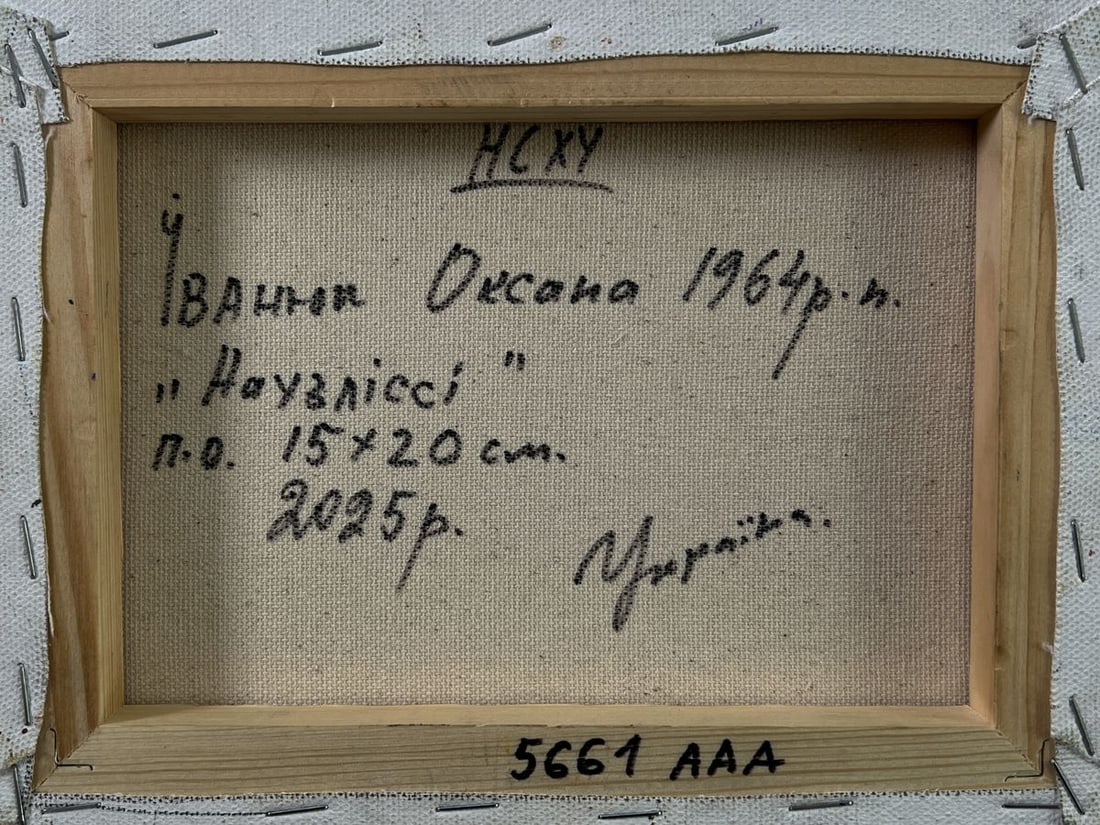 НСХУ
Іванюк Оксана 1964р.н.
„Наузліссі"
п.о. 15×20 см.
2025р.
Україна.
5661 ААА